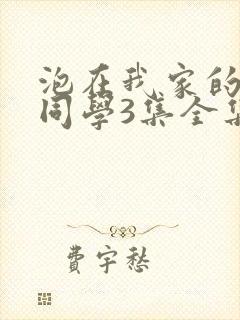 泡在我家的
同學3集全集
費宇愁